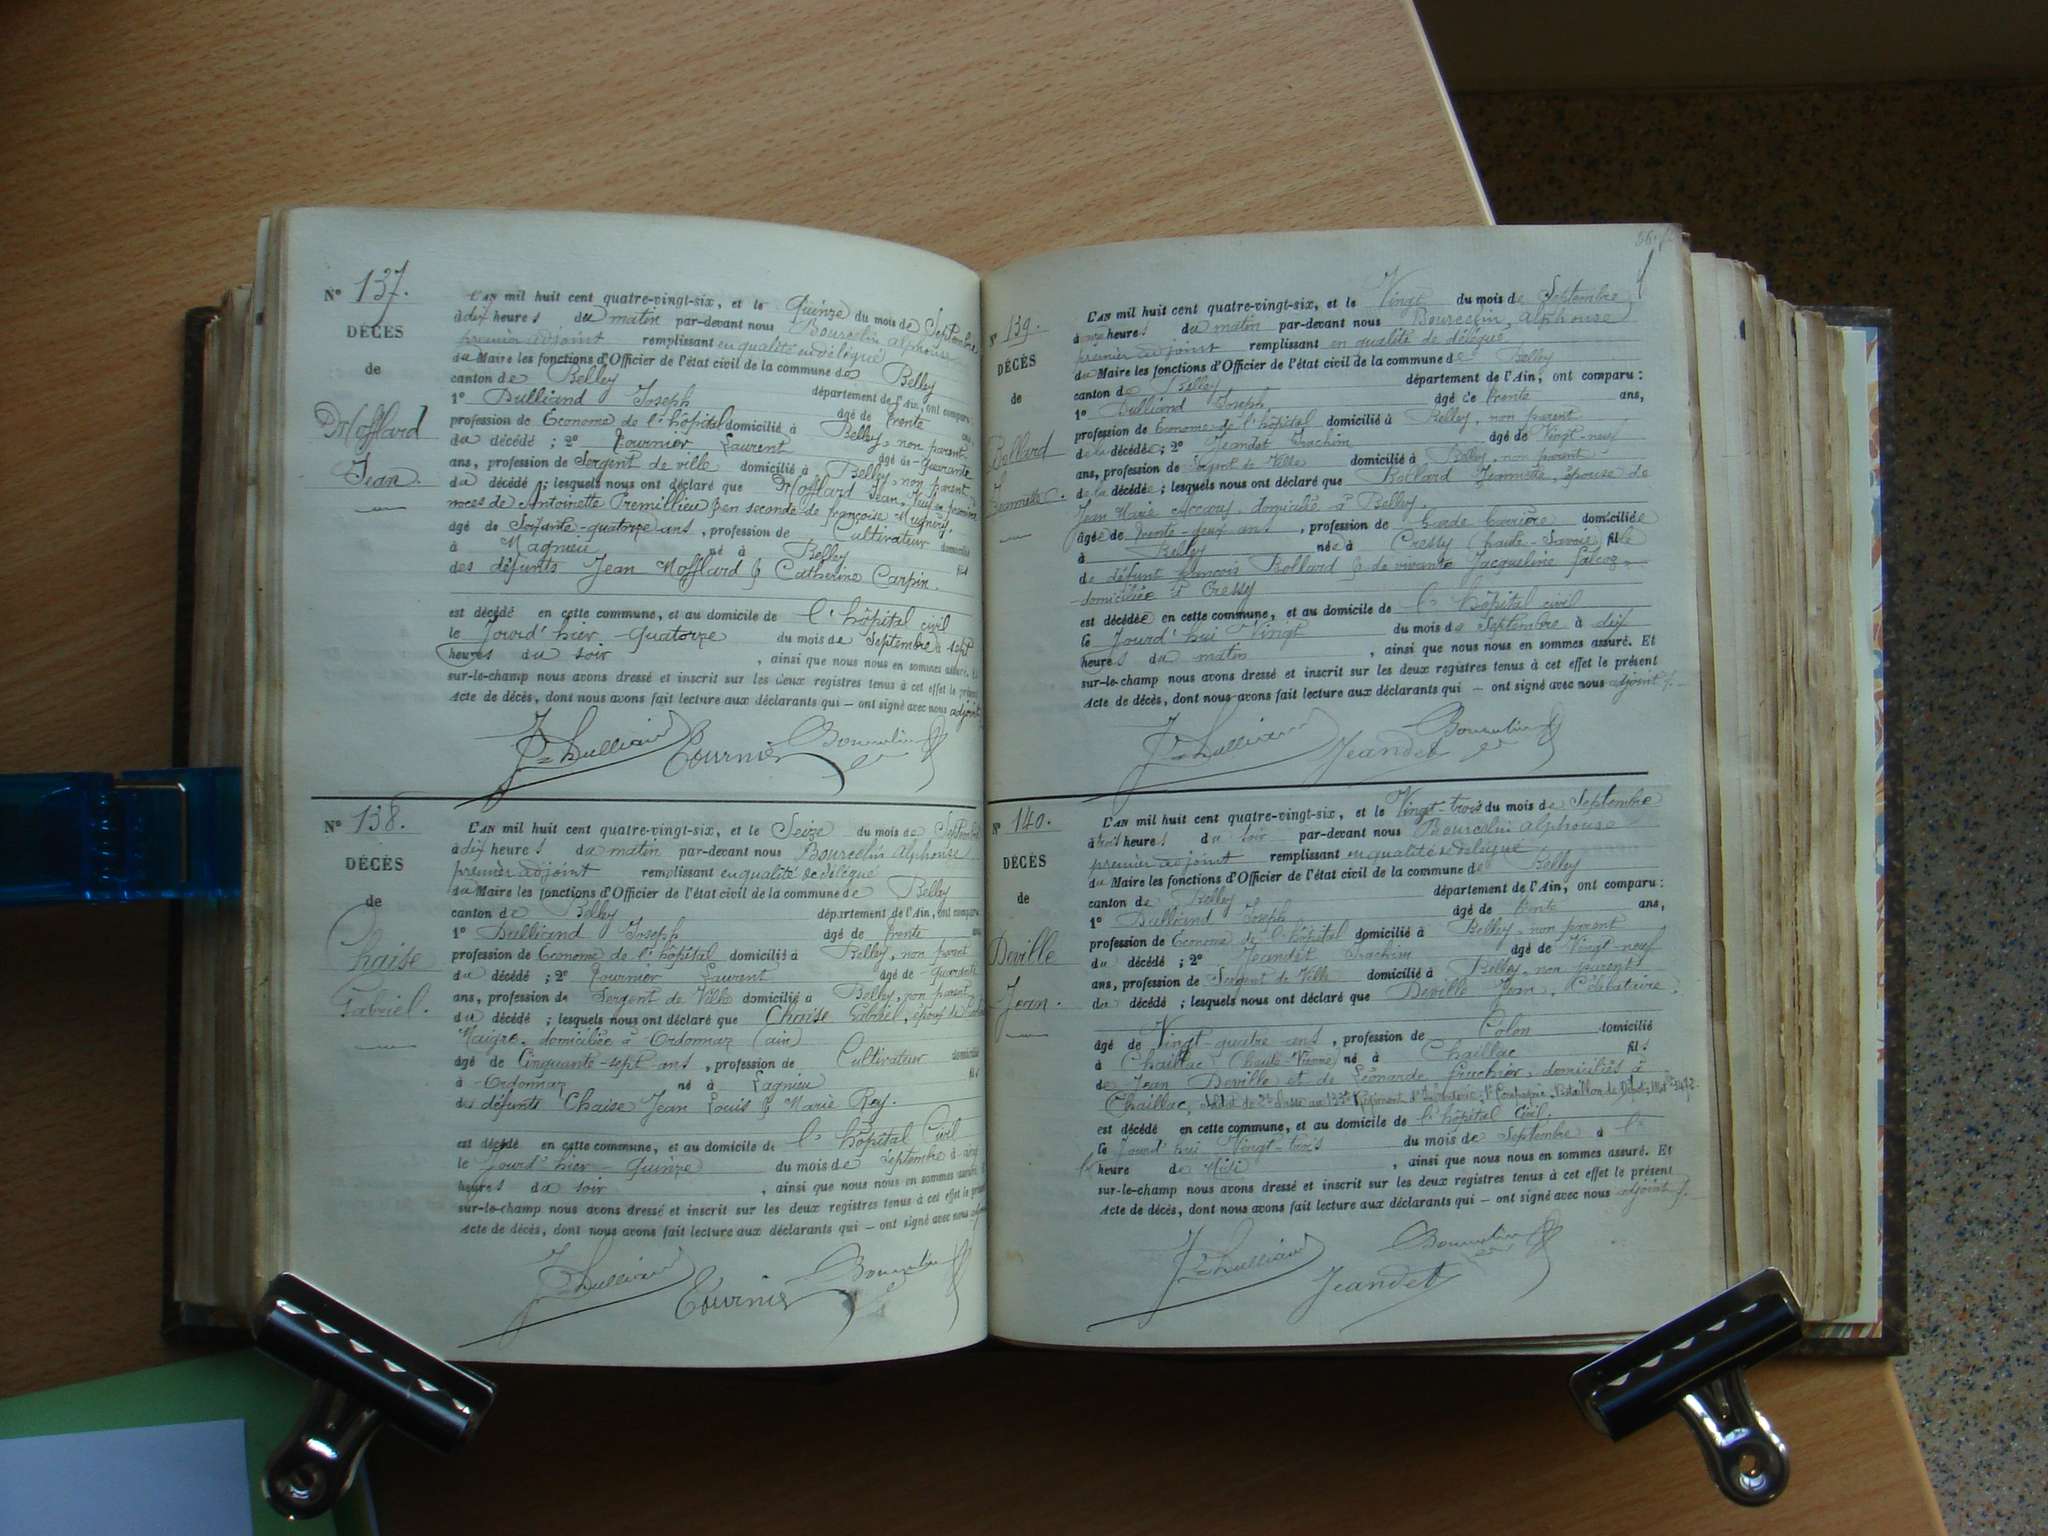 N° 137.
DÉCÈS
de
Mofflard
Jean.
L'AN mil huit cent quatre-vingt-six, et le Quinze du mois de Septembre
à dix heures du matin par-devant nous Bourcelin Alphonse
premier adjoint remplissant en qualité de délégué
du Maire les fonctions d'Officier de l'état civil de la commune de Belley
canton de Belley département de l'Ain, ont comparu :
1° Dulliand Joseph âgé de trente ans,
profession de Econome de l'hôpital domicilié à Belley, non parent
du décédé ; 2° Tournier Laurent âgé de Quarante
ans, profession de Sergent de ville domicilié à Belley, non parent
du décédé ; lesquels nous ont déclaré que Mofflard Jean, Veuf en première
noces de Antoinette Premillieu & en seconde de françoise Mugnery
âgé de Soixante-quatorze ans, profession de Cultivateur domicilié
à Magnieu né à Belley fils
des défunts Jean Mofflard & Catherine Carpin.
est décédé en cette commune, et au domicile de l'hôpital civil
le Jourd'hier quatorze du mois de Septembre à sept
heures du soir, ainsi que nous nous en sommes assuré. Et
sur-le-champ nous avons dressé et inscrit sur les deux registres tenus à cet effet le présent
Acte de décès, dont nous avons fait lecture aux déclarants qui — ont signé avec nous adjoint
Jh Dulliand Tournier Bourcelin
N° 138.
DÉCÈS
de
Chaise
Gabriel.
L'AN mil huit cent quatre-vingt-six, et le Seize du mois de Septembre
à dix heures du matin par-devant nous Bourcelin Alphonse
premier adjoint remplissant en qualité de délégué
du Maire les fonctions d'Officier de l'état civil de la commune de Belley
canton de Belley département de l'Ain, ont comparu
1° Dulliand Joseph âgé de trente ans
profession de Econome de l'hôpital domicilié à Belley, non parent
du décédé ; 2° Tournier Laurent âgé de Quarante
ans, profession de Sergent de Ville domicilié à Belley, non parent
du décédé ; lesquels nous ont déclaré que Chaise Gabriel, époux de
Maigre, domiciliée à Ordonnaz (ain)
âgé de Cinquante-sept ans, profession de Cultivateur domicilié
à Ordonnaz né à Lagnieu fils
des défunts Chaise Jean Louis & Marie Rey.
est décédé en cette commune, et au domicile de l'hôpital Civil
le Jourd'hier Quinze du mois de Septembre à cinq
heures du soir, ainsi que nous nous en sommes assuré. Et
sur-le-champ nous avons dressé et inscrit sur les deux registres tenus à cet effet le présent
Acte de décès, dont nous avons fait lecture aux déclarants qui — ont signé avec nous adjoint
Jh Dulliand Tournier Bourcelin
N° 139.
DÉCÈS
de
Bollard
Jeannette.
L'AN mil huit cent quatre-vingt-six, et le Vingt du mois de Septembre
à onze heures du matin par-devant nous Bourcelin, Alphonse
premier adjoint remplissant en qualité de délégué
du Maire les fonctions d'Officier de l'état civil de la commune de Belley
canton de Belley département de l'Ain, ont comparu :
1° Dulliand Joseph âgé de trente ans,
profession de Econome de l'hôpital domicilié à Belley, non parent
de la décédée ; 2° Jeandet Joachim âgé de Vingt-neuf
ans, profession de Sergent de Ville domicilié à Belley, non parent
de la décédée ; lesquels nous ont déclaré que Bollard Jeannette, épouse de
Jean Marie domicilié à Belley.
âgée de trente-deux ans, profession de Garde barrière domiciliée
à Belley née à Cressy (haute-Savoie) fille
de défunt françois Bollard & de vivante Jacqueline falcoz,
domiciliée à Cressy
est décédée en cette commune, et au domicile de l'hôpital civil
le Jourd'hui Vingt du mois de Septembre à dix
heures du matin, ainsi que nous nous en sommes assuré. Et
sur-le-champ nous avons dressé et inscrit sur les deux registres tenus à cet effet le présent
Acte de décès, dont nous avons fait lecture aux déclarants qui — ont signé avec nous adjoint
Jh Dulliand Jeandet Bourcelin
N° 140.
DÉCÈS
de
Deville
Jean.
L'AN mil huit cent quatre-vingt-six, et le Vingt-trois du mois de Septembre
à trois heures du soir par-devant nous Bourcelin Alphonse
premier adjoint remplissant en qualité de délégué
du Maire les fonctions d'Officier de l'état civil de la commune de Belley
canton de Belley département de l'Ain, ont comparu :
1° Dulliand Joseph âgé de trente ans,
profession de Econome de l'hôpital domicilié à Belley, non parent
du décédé ; 2° Jeandet Joachim âgé de Vingt-neuf
ans, profession de Sergent de Ville domicilié à Belley, non parent
du décédé ; lesquels nous ont déclaré que Deville Jean, Célibataire,
âgé de Vingt-quatre ans, profession de Colon domicilié
à Chaillac (haute-Vienne) né à Chaillac fils
de Jean Deville et de Léonarde fruchier, domiciliés à
Chaillac, soldat de 2e classe au 133e Régiment d'Infanterie, 1e Compagnie, Bataillon de Dépôt, Mle 3472
est décédé en cette commune, et au domicile de l'hôpital Civil
le Jourd'hui Vingt-trois du mois de Septembre à l'
heure de Midi, ainsi que nous nous en sommes assuré. Et
sur-le-champ nous avons dressé et inscrit sur les deux registres tenus à cet effet le présent
Acte de décès, dont nous avons fait lecture aux déclarants qui — ont signé avec nous adjoint
Jh Dulliand Jeandet Bourcelin